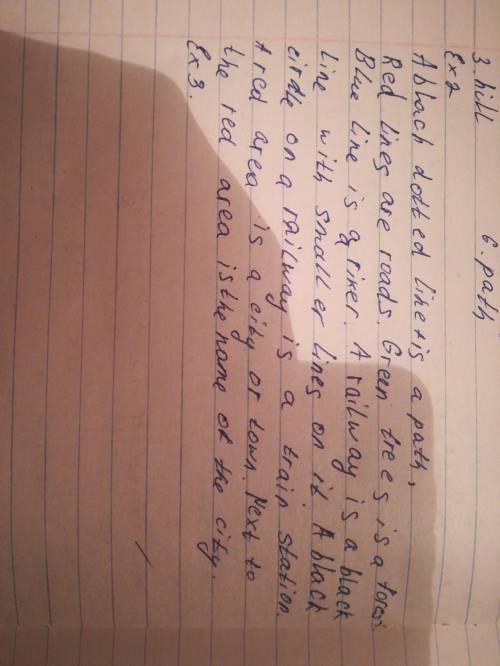 3. hill 6. path
Ex 2
A black dotted line is a path,
Red lines are roads. Green trees is a forest
Blue line is a river. A railway is a black
line with smaller lines on it A black
circle on a railway is a train station.
A red area is a city or town. Next to
the red area is the name of the city.
Ex. 3.